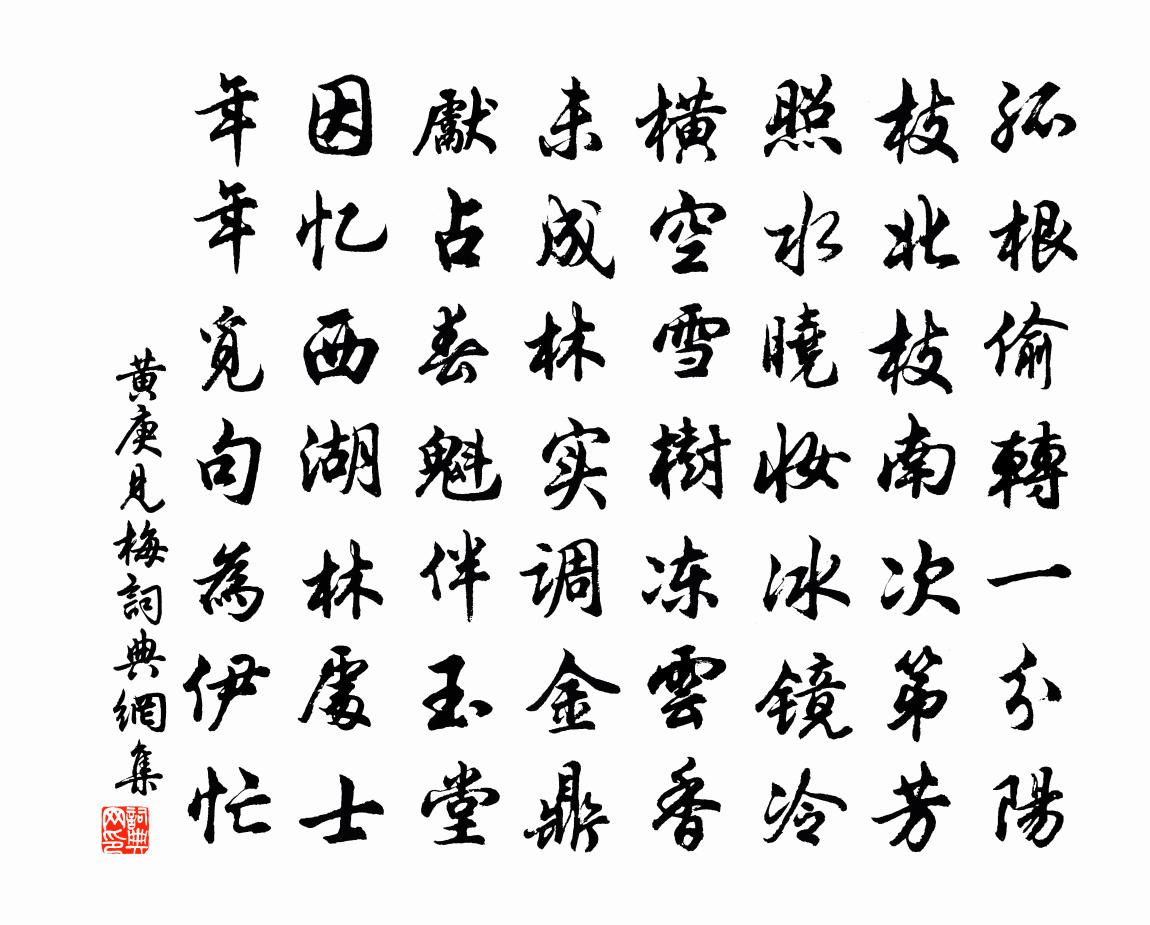 孤根偷轉一分陽
枝北枝南次第芳
照水曉妆冰镜冷
横空雪樹冻雲香
未成林实调金鼎
獻占春魁伴玉堂
因忆西湖林處士
年年覓句為伊忙
黄庚見梅詞典網集
詞典網印